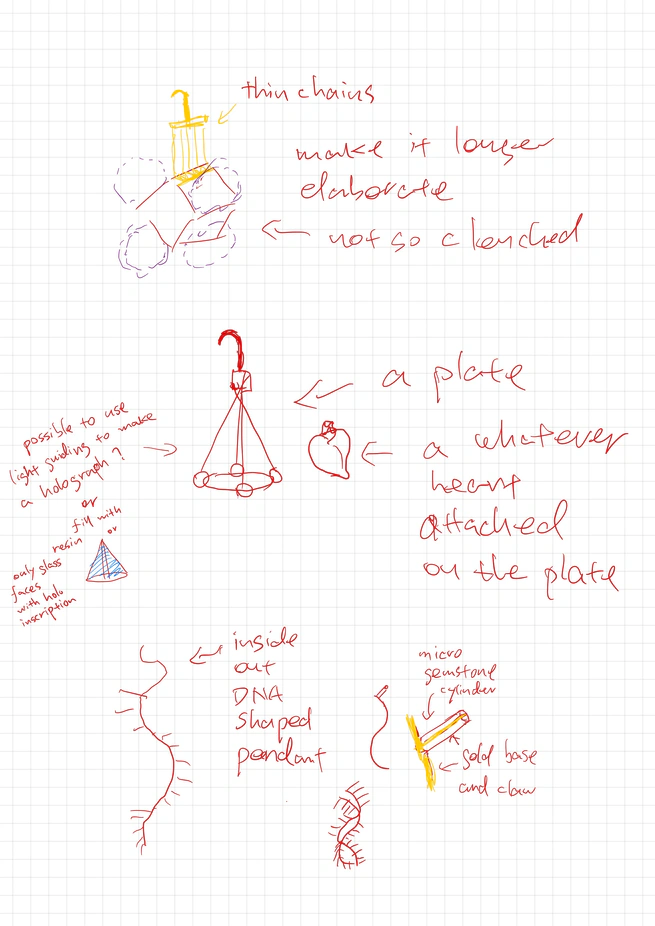 thin chains
make it longer
elaborate
not so clenched
a plate
possible to use
light guiding to make
a holograph?
or
fill with
resin or
only glass
faces
with holo
inscription
a whatever
heart
attached
on the plate
inside
out
DNA
shaped
pendant
micro
gemstone
cylinder
gold base
and claw